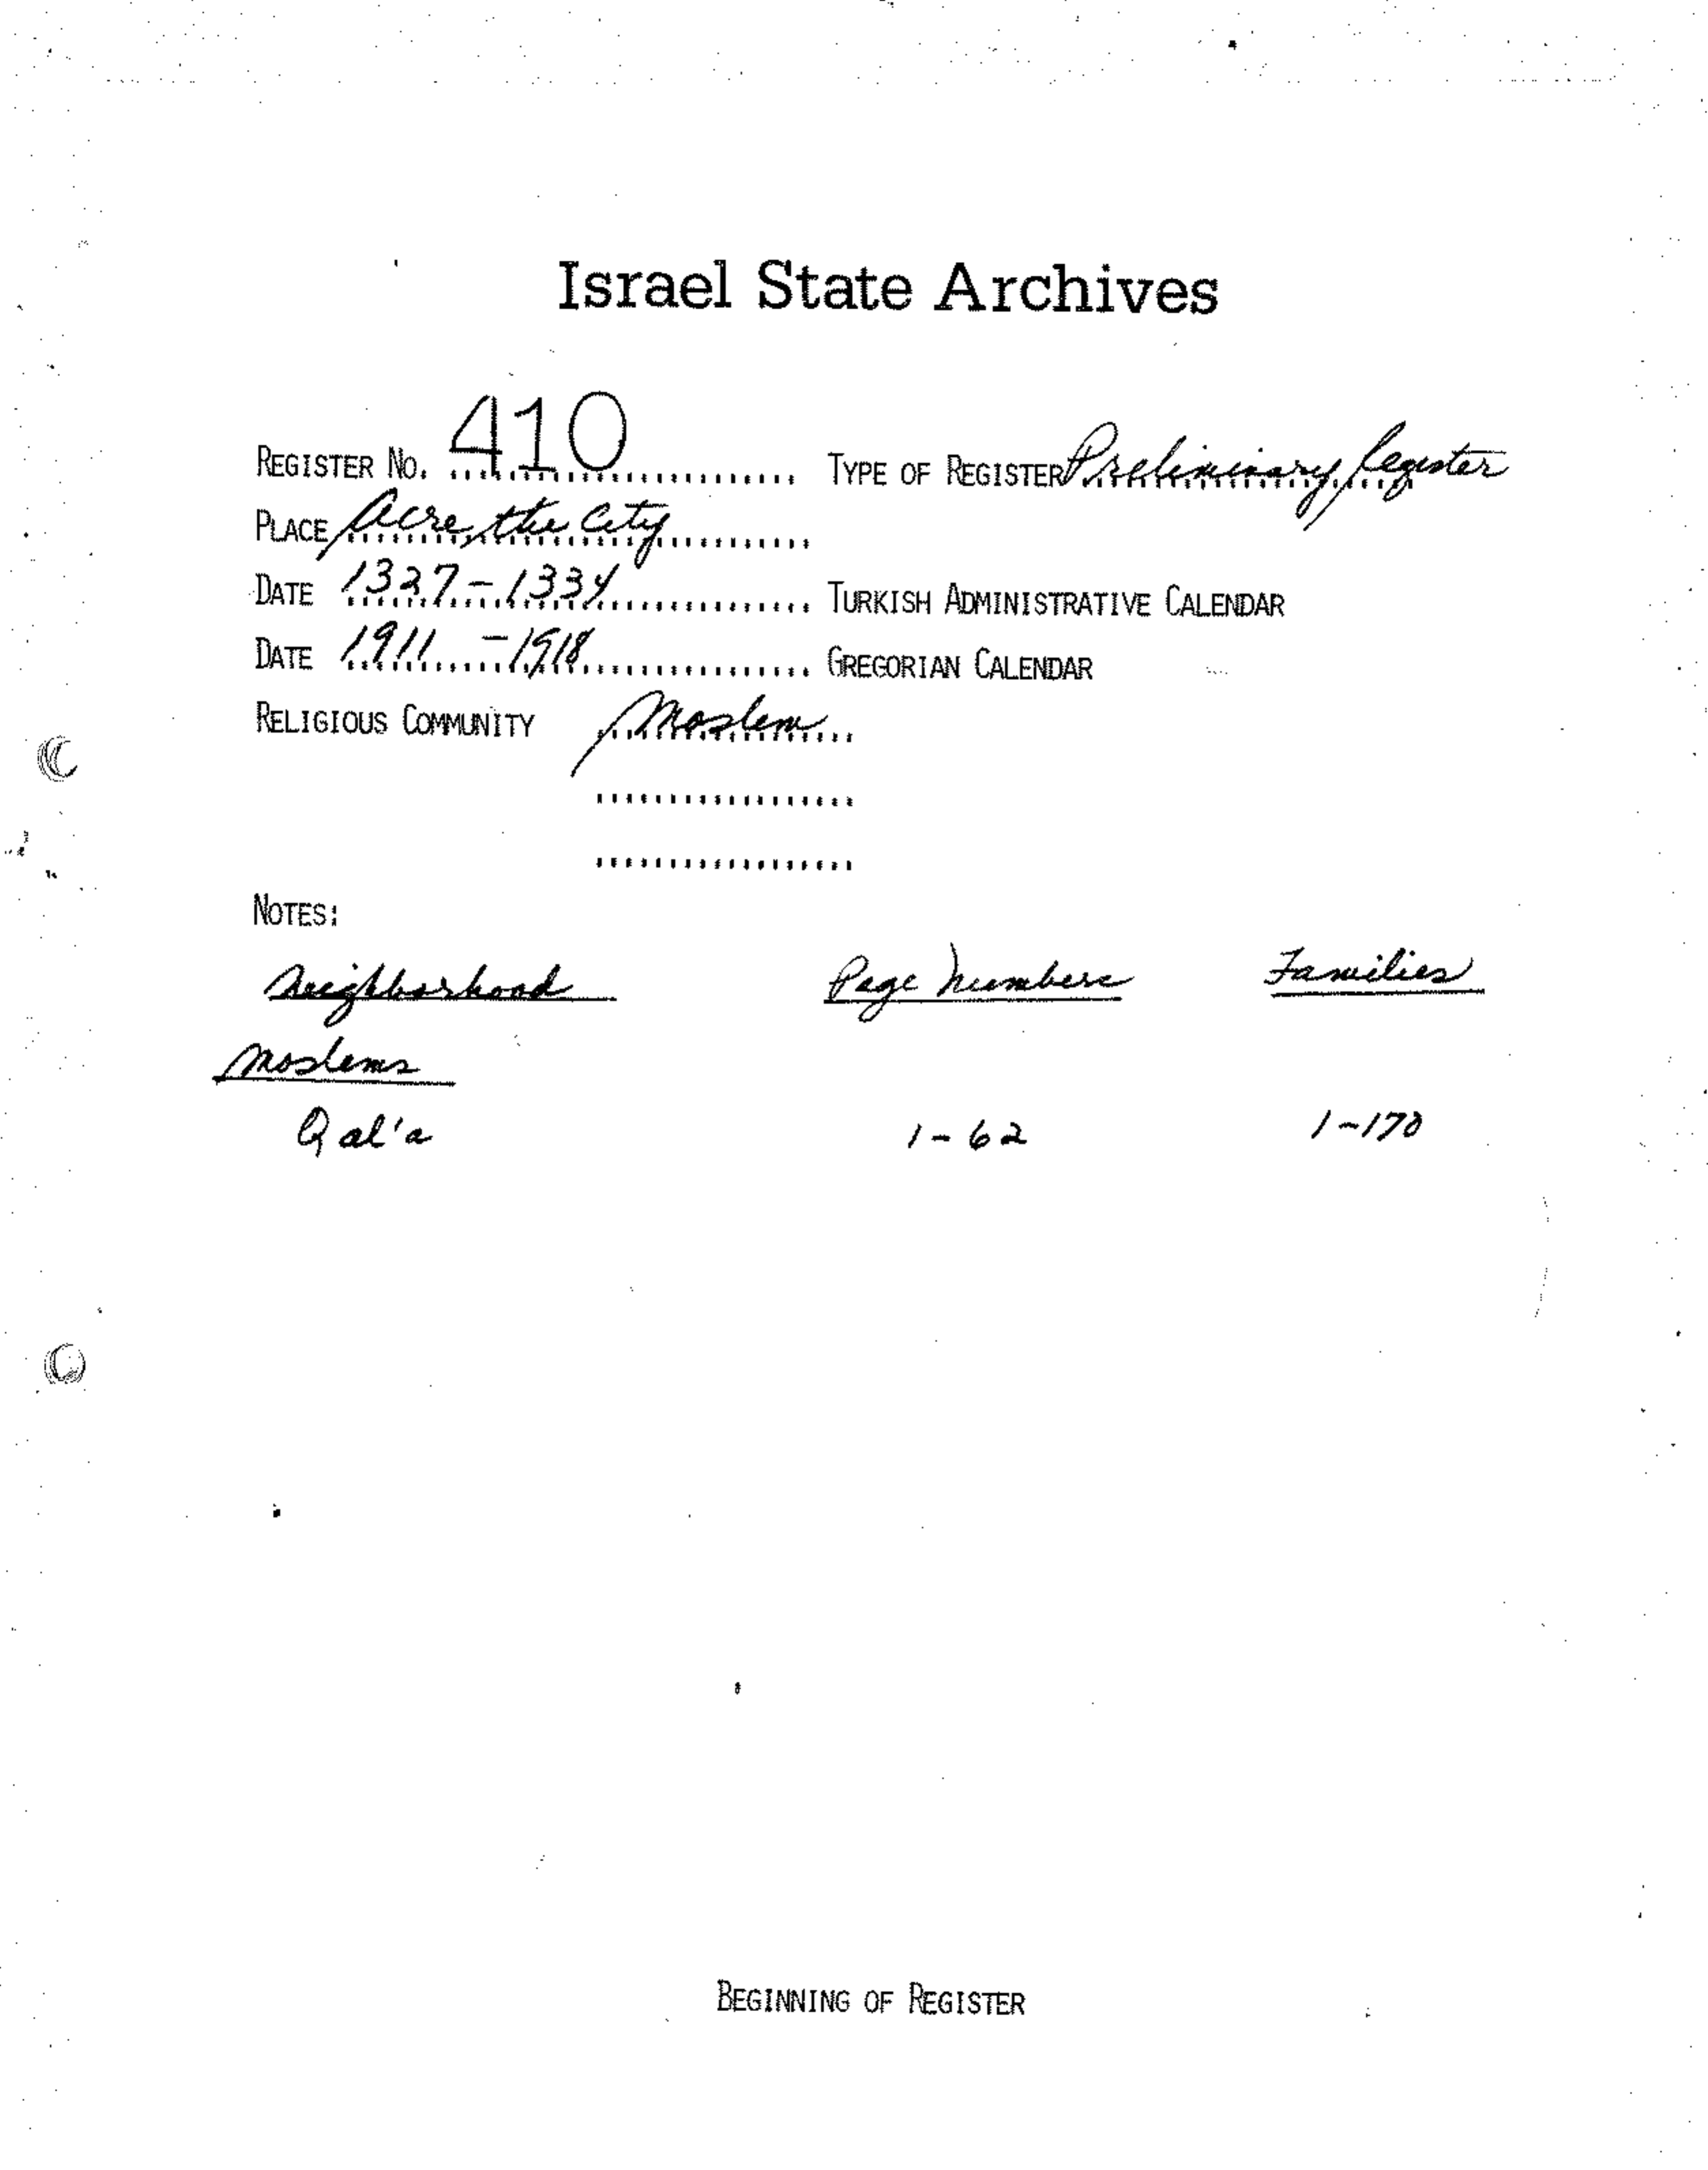 Israel State Archives
REGISTER NO. 410 TYPE OF REGISTER Preliminary Register
PLACE Acre, the City
DATE 1327-1334 TURKISH ADMINISTRATIVE CALENDAR
DATE 1911-1918 GREGORIAN CALENDAR
RELIGIOUS COMMUNITY Moslem
NOTES:
Neighborhood Page Numbers Families
Moslems
Qal'a 1-62 1-170
BEGINNING OF REGISTER